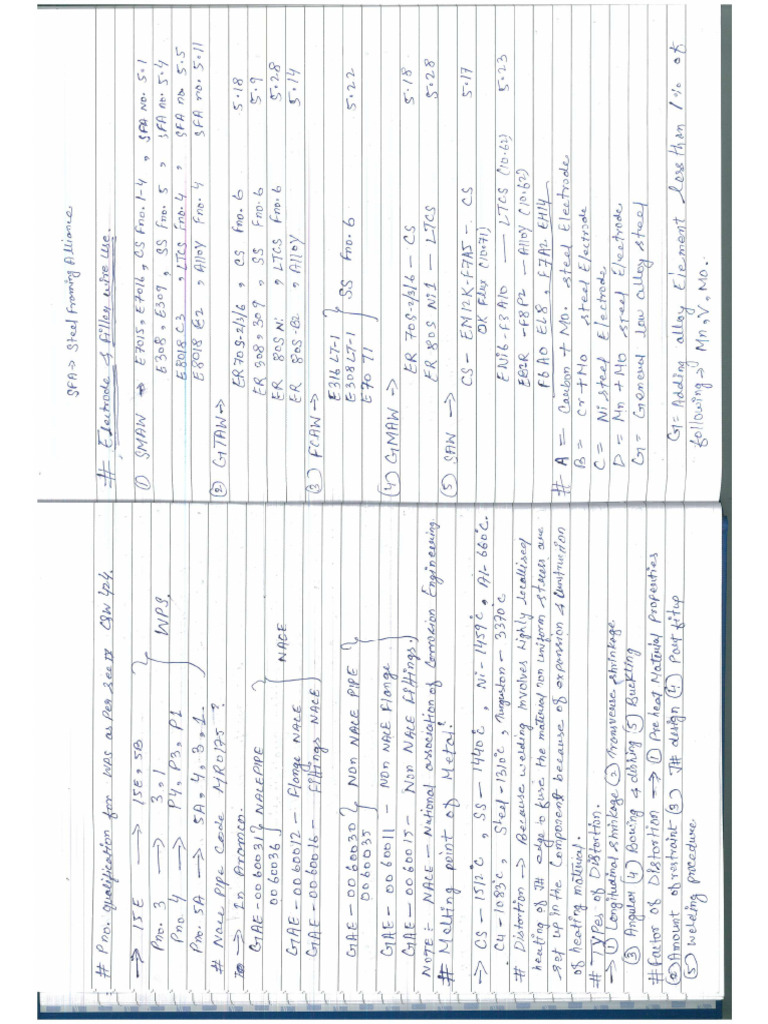 # Pno. qualification for WPS as per Sec IX QW 424.
→ 15E → 15E, 5B
Pno. 3 → 3, 1
Pno 4 → P4, P3, P1
Pno. 5A → 5A, 4, 3, 1.
WPS
# Nace Pipe Code MR0175 ?
→ In Aramco.
GAE - 0060031 NACE PIPE
0060036
GAE - 0060012 - Flange NACE
GAE - 0060016 - Fittings NACE
NACE
GAE - 0060030 NON NACE PIPE
0060035
GAE - 0060011 - NON NACE Flange
GAE - 0060015 - NON NACE Fittings.
NOTE :- NACE - National association of Corrosion Engineering
# Melting point of Metal :
→ CS - 1512°C, SS - 1440°C, Ni - 1459°C, Al - 660°C.
Cu - 1083°C, Steel - 1310°C, Tungston - 3370°C
# Distortion → Because welding involves highly localised
heating of Jt edge to fuse the material non uniform stress are
set up in the Component because of expansion & Construction
of heating material.
# TYPes of Distortion.
→ (1) Longitudinal shrinkage (2) Transverse shrinkage
(3) Angular (4) Bowing & dishing (5) Buckling
# factor of Distortion → (1) Pre heat Material Properties
(2) Amount of restraint (3) Jt design (4) Part fitup
(5) Welding procedure.
SFA → Steel Framing Alliance
# Electrode & Filler wire use.
(1) SMAW → E7015, E7016, CS Fno. 1-4, SFA no. 5.1
E308, E309, SS Fno. 5, SFA no. 5.4
E8018 C3, LTCS Fno. 4, SFA no 5.5
E8018 B2, Alloy Fno. 4 SFA no. 5.11
(2) GTAW → ER70S-2/3/6, CS Fno. 6 5.18
ER 308, 309, SS Fno. 6 5.9
ER 80S Ni, LTCS Fno. 6 5.28
ER 80S-B2, Alloy 5.14
(3) FCAW →
E316 LT-1
E308 LT-1 SS Fno. 6 5.22
E70 T1
(4) GMAW → ER 70S-2/3/6 - CS 5.18
ER 80S Ni1 - LTCS 5.28
(5) SAW → CS - EM12K-F7A5 - CS 5.17
OK Flux (10.71)
ENi6-F8A10 - LTCS (10.62) 5.23
EB2R - F8P2 - Alloy (10.62)
F6A0 EL8, F7A2 EH14
# A = Carbon + Mo. steel Electrode
B = Cr + Mo steel Electrode
C = Ni steel Electrode
D = Mn + Mo steel Electrode
G = General low alloy steel
G = Adding alloy Element less than 1% of
following → Mn, V, Mo.